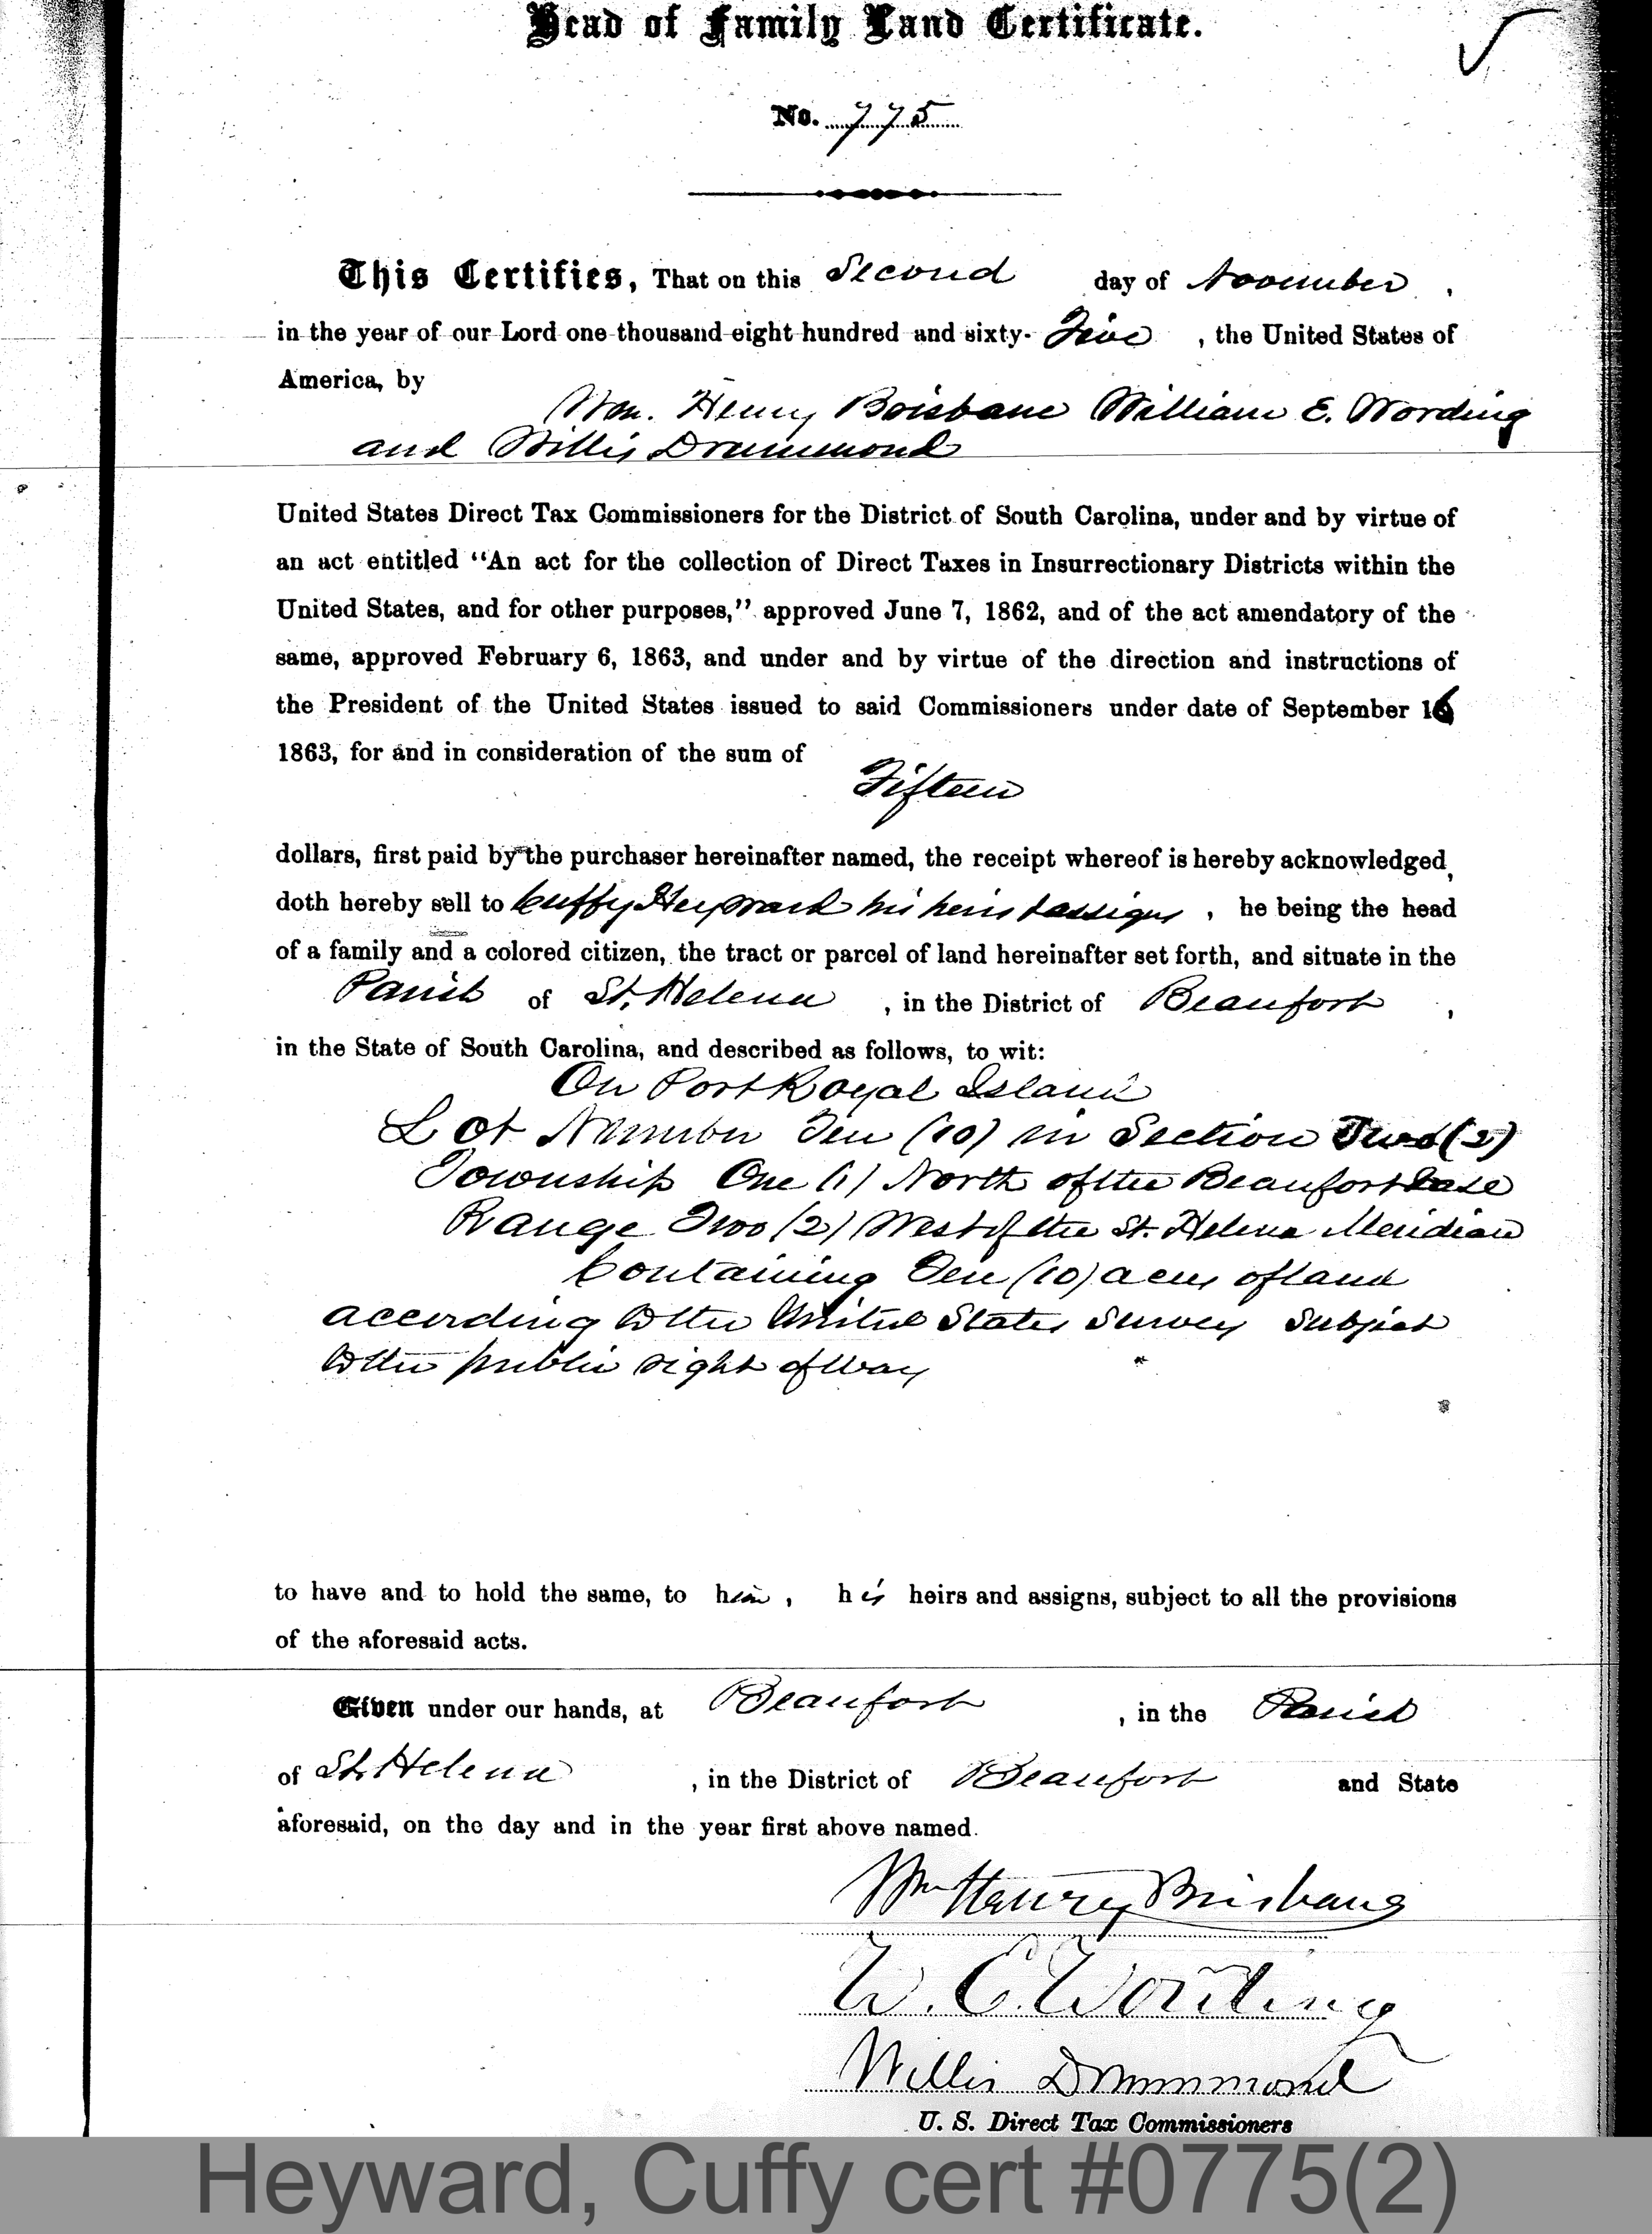 Head of Family Land Certificate.
No. 775
This Certifies, That on this Second day of November,
in the year of our Lord one thousand eight hundred and sixty-Five, the United States of
America, by
Wm. Henry Brisbane William E. Wording
and Willis Drummond
United States Direct Tax Commissioners for the District of South Carolina, under and by virtue of
an act entitled “An act for the collection of Direct Taxes in Insurrectionary Districts within the
United States, and for other purposes,” approved June 7, 1862, and of the act amendatory of the
same, approved February 6, 1863, and under and by virtue of the direction and instructions of
the President of the United States issued to said Commissioners under date of September 16
1863, for and in consideration of the sum of
Fifteen
dollars, first paid by the purchaser hereinafter named, the receipt whereof is hereby acknowledged,
doth hereby sell to Cuffy Heyward his heirs & assigns, he being the head
of a family and a colored citizen, the tract or parcel of land hereinafter set forth, and situate in the
Parish of St. Helena, in the District of Beaufort,
in the State of South Carolina, and described as follows, to wit:
On Port Royal Island
Lot Number Ten (10) in Section Two (2)
Township One (1) North of the Beaufort base
Range Two (2) West of the St. Helena Meridian
Containing Ten (10) acres of land
according to the United States Survey Subject
to the public right of way
to have and to hold the same, to him, his heirs and assigns, subject to all the provisions
of the aforesaid acts.
Given under our hands, at Beaufort, in the Parish
of St. Helena, in the District of Beaufort and State
aforesaid, on the day and in the year first above named.
Wm Henry Brisbane
W. E. Wording
Willis Drummond
U. S. Direct Tax Commissioners
Heyward, Cuffy cert #0775(2)